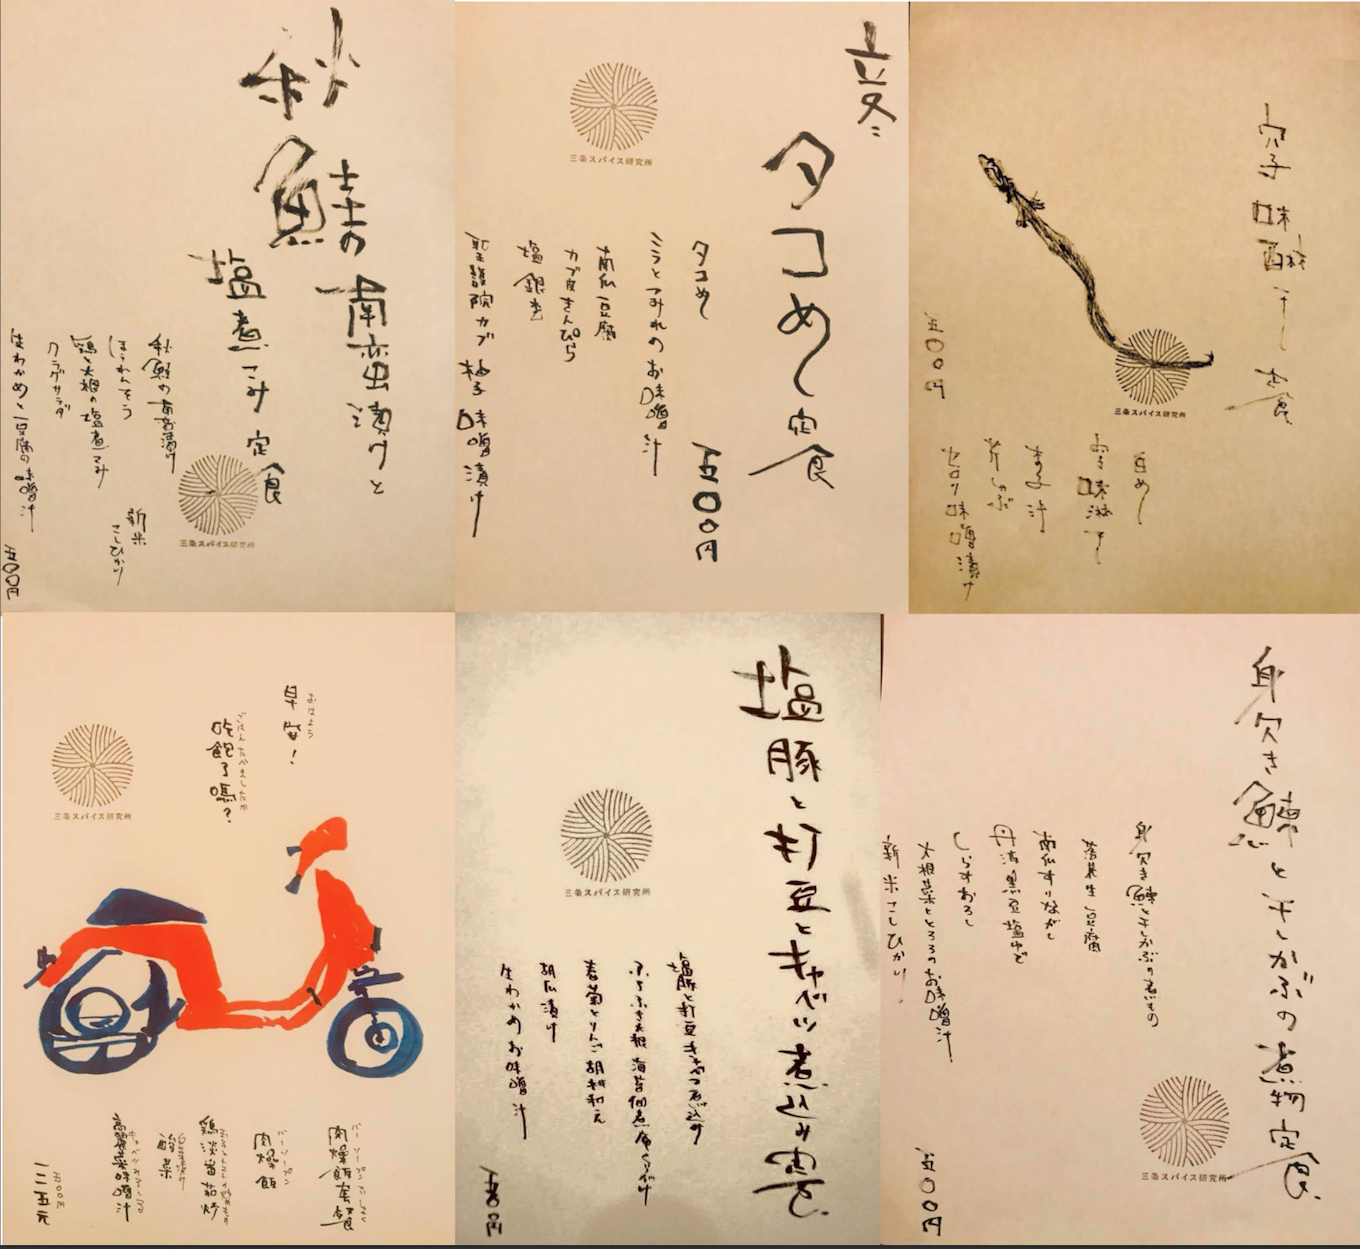 秋
鮭の南蛮漬けと
塩煮こみ定食
秋鮭の南蛮漬け
ほうれんそう
鶏と大根の塩煮こみ
クラゲサラダ
生わかめと豆腐の味噌汁
新米
こしひかり
五〇〇円
三条スパイス研究所
立冬
タコめし定食
五〇〇円
タコめし
ミラとつみれのお味噌汁
南瓜豆腐
カブ皮きんぴら
塩銀杏
聖護院カブ 柚子味噌漬け
三条スパイス研究所
穴子味醂干し定食
豆めし
穴子味淋干し
きのこ汁
芹しゃぶ
セロリ味噌漬け
五〇〇円
三条スパイス研究所
おはよう
早安!
ごはんたべましたか
吃飽了嗎?
三条スパイス研究所
肉燥飯套餐
肉燥飯
鶏淡番茄炒
酸菜
高麗菜味噌汁
五〇〇円
一二五元
塩豚と打豆とキャベツ煮込み定食
塩豚と打豆キャベツ煮込み
ふろふき大根 海苔佃煮
春菊とりんご胡桃和え
胡瓜漬け
生わかめお味噌汁
五〇〇円
三条スパイス研究所
身欠き鰊と干しかぶの煮物定食
身欠き鰊と干しかぶの煮もの
落花生豆腐
南瓜すりながし
丹波黒豆塩ゆで
しらすおろし
大根菜ととろろのお味噌汁
新米こしひかり
五〇〇円
三条スパイス研究所